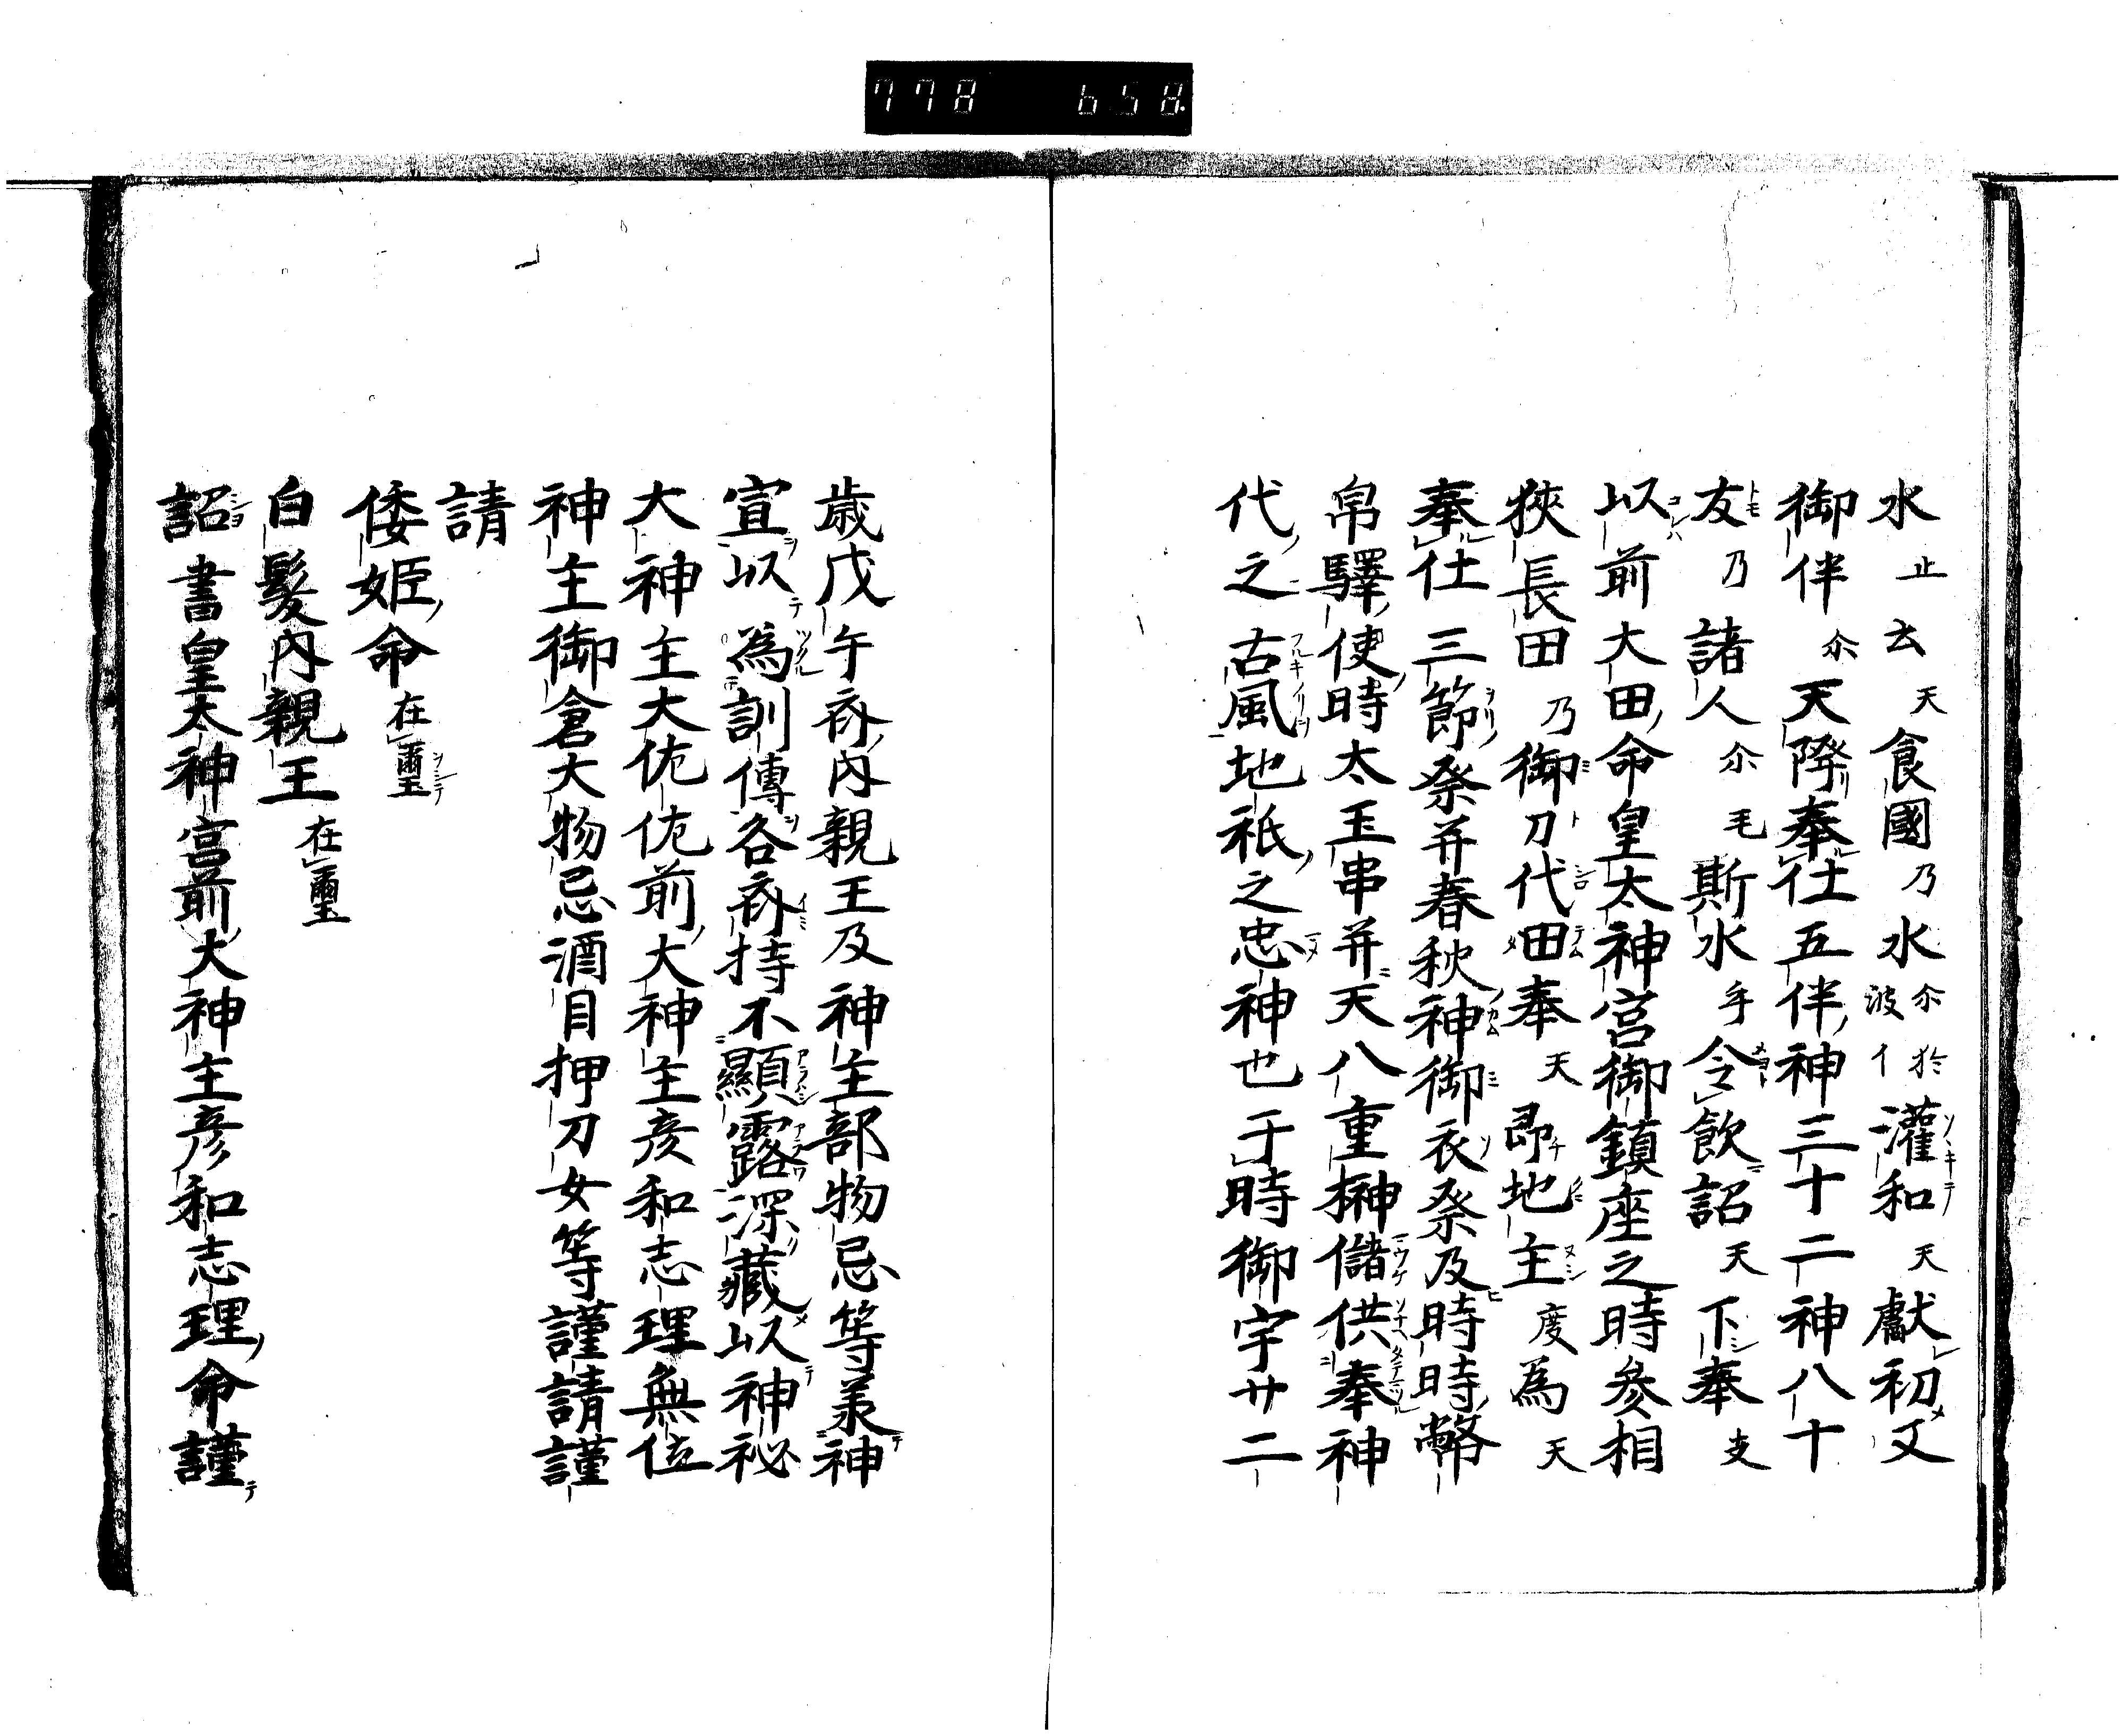 778 658
水止云天食國乃水尒波於亻灌和天獻初又
御伴尒天降奉仕五伴神三十二神八十
友乃諸人尒毛斯水乎令飲詔天下奉支
以前大田命皇太神宮御鎮座之時參相
狹長田乃御刀代田奉天即地主度為天
奉仕三節祭并春秋神御衣祭及時時幣
帛驛使時太玉串并天八重榊儲供奉神
代之古風地祇之忠神也于時御宇廿二
歳戊午齋內親王及神主部物忌等羕神
宣以為訓傳各齋持不顯露深藏以神祕
大神主大佐佐前大神主彦和志理無位
神主御倉大物忌酒目押刀女等謹請謹
請
倭姫命在璽
白髮內親王在璽
詔書皇太神宮前大神主彦和志理命謹